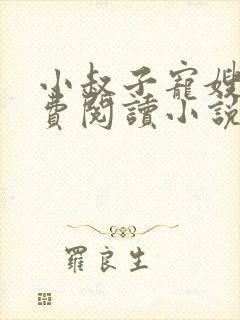 小叔子寵嫂
費閱讀小說
羅良生